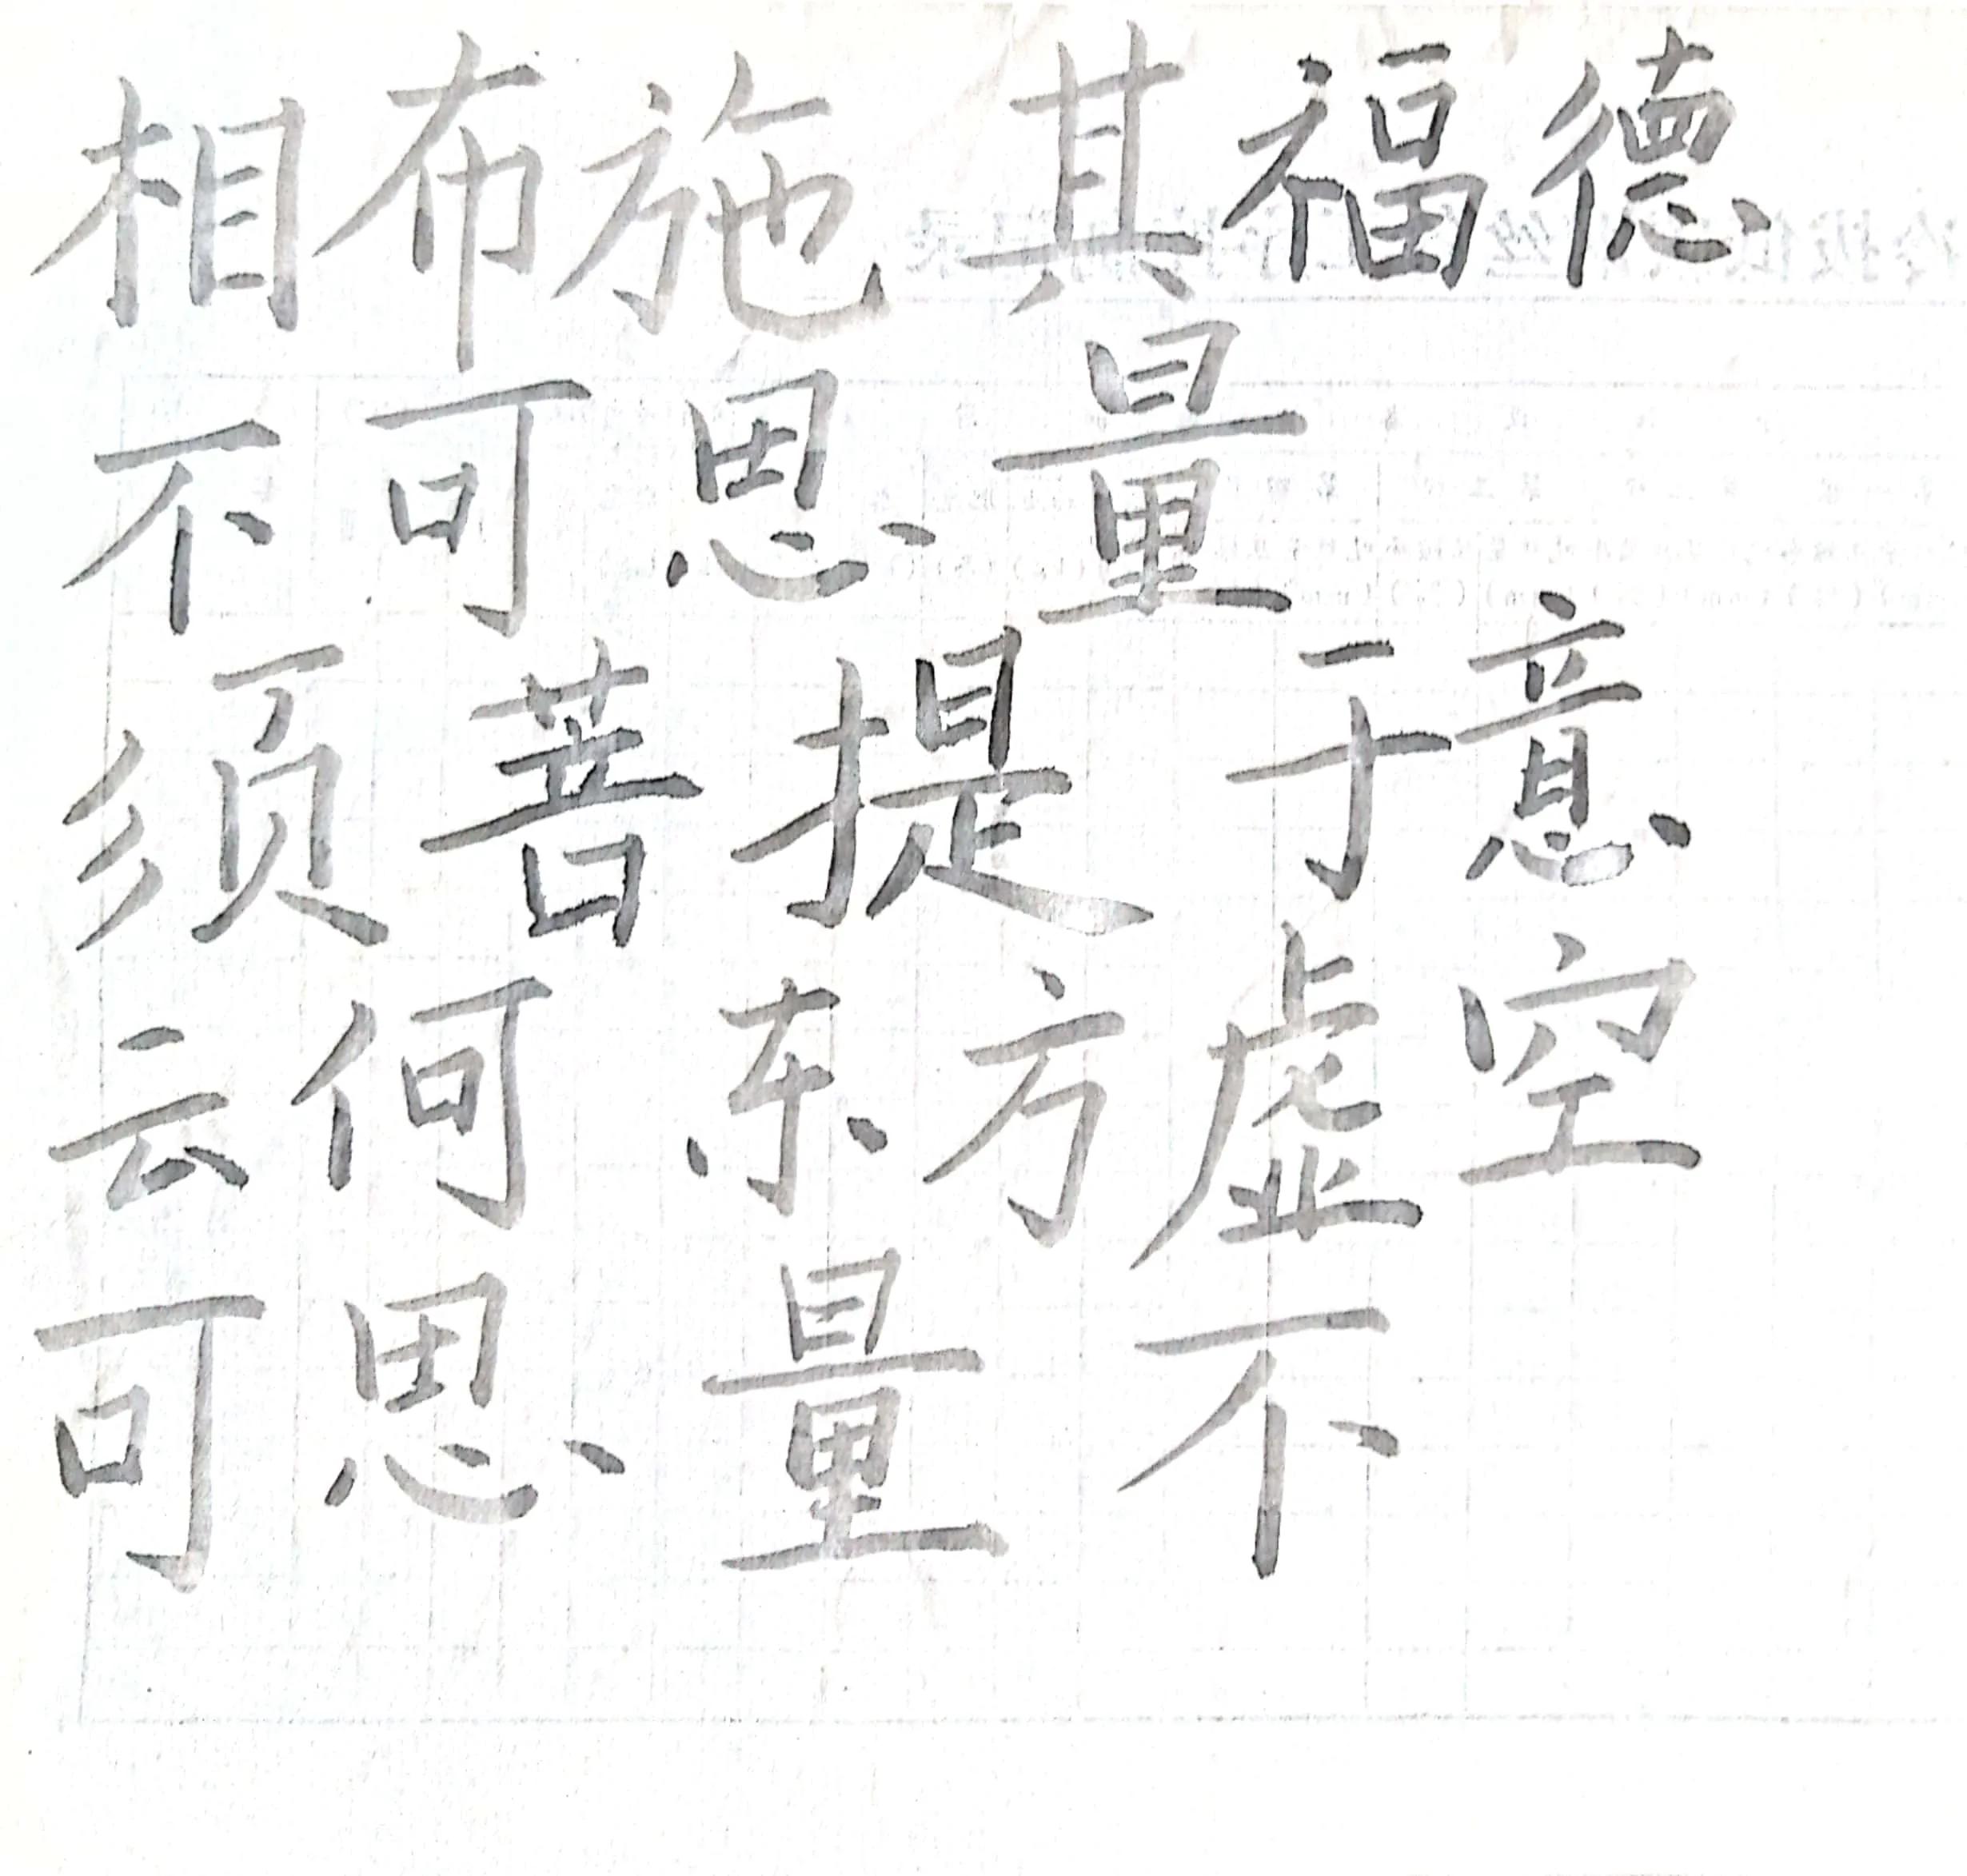 相布施其福德
不可思量
须菩提于意
云何东方虚空
可思量不